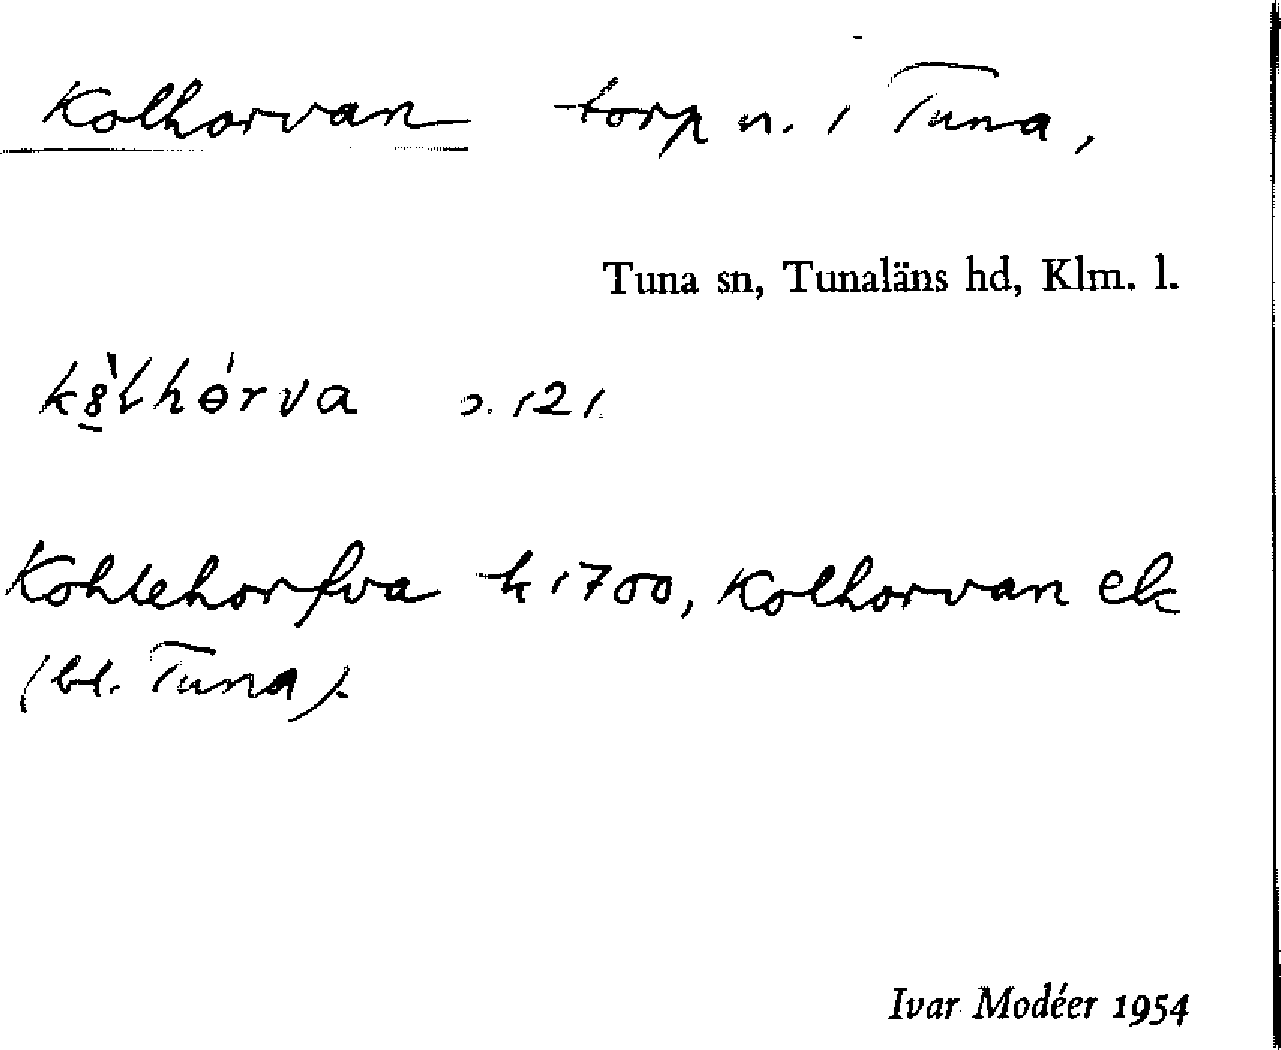 Kolhorvan torp n. i Tuna,
Tuna sn, Tunaläns hd, Klm. l.
o. 121
Kohlehorfva k 1700, Kolhorvan ek
(bl. Tuna).
Ivar Modéer 1954